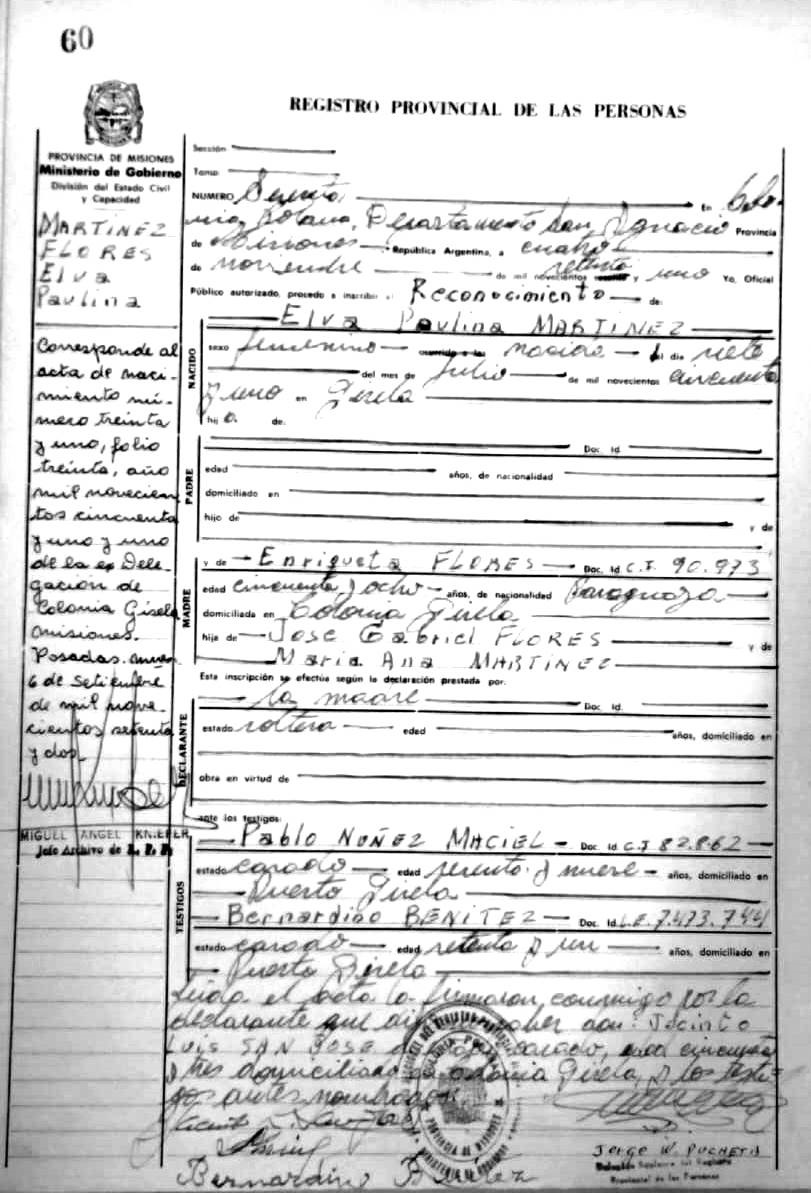 60
REGISTRO PROVINCIAL DE LAS PERSONAS
PROVINCIA DE MISIONES
Ministerio de Gobierno
División del Estado Civil
y Capacidad
MARTINEZ
FLORES
Elva
Paulina
Corresponde al
acta de naci-
miento nú-
mero treinta
y uno, folio
treinta, año
mil novecien
tos cincuenta
y uno y uno
de la ex Dele-
gación de
Colonia Gisela
Misiones.
Posadas.
6 de Setiembre
de mil nove-
cientos setenta
y dos
MIGUEL ANGEL KNIEPER
Jefe Archivo de R. P. P.
Sección
Tomo
NUMERO Sesenta En Colo-
nia Polana, Departamento San Ignacio Provincia
de Misiones República Argentina, a cuatro
de noviembre de mil novecientos setenta y uno Yo, Oficial
Público autorizado, procedo a inscribir el Reconocimiento de:
Elva Paulina MARTINEZ
NACIDO
sexo femenino nacida el día siete
del mes de Julio de mil novecientos cincuenta
y uno en Gisela
hija de:
PADRE
Doc. Id.
edad años, de nacionalidad
domiciliado en
hijo de y de
MADRE
y de Enriqueta FLORES Doc. Id. C.I. 90.973
edad cincuenta y ocho años, de nacionalidad Paraguaya
domiciliada en Colonia Gisela
hija de José Gabriel FLORES y de
Maria Ana MARTINEZ
Esta inscripción se efectúa según la declaración prestada por:
DECLARANTE
la madre Doc. Id.
estado soltera edad años, domiciliado en
obra en virtud de
ante los testigos:
TESTIGOS
Pablo NUÑEZ MACIEL Doc. Id. C.I 82.862
estado casado edad sesenta y nueve años, domiciliado en
Puerto Gisela
Bernardino BENITEZ Doc. Id. L.E. 7.473.744
estado casado edad setenta y un años, domiciliado en
Puerto Gisela
Leída el acta la firmaron, conmigo por la
declarante que dijo no saber don: Jacinto
LUIS SAN JOSE casado, edad cincuenta
y tres domiciliado en Colonia Gisela, y los testi-
gos antes nombrados.
PROVINCIA DE MISIONES
MINISTERIO DE GOBIERNO
Bernardino Benitez
JORGE W. PUCHETA
Provincial de las Personas